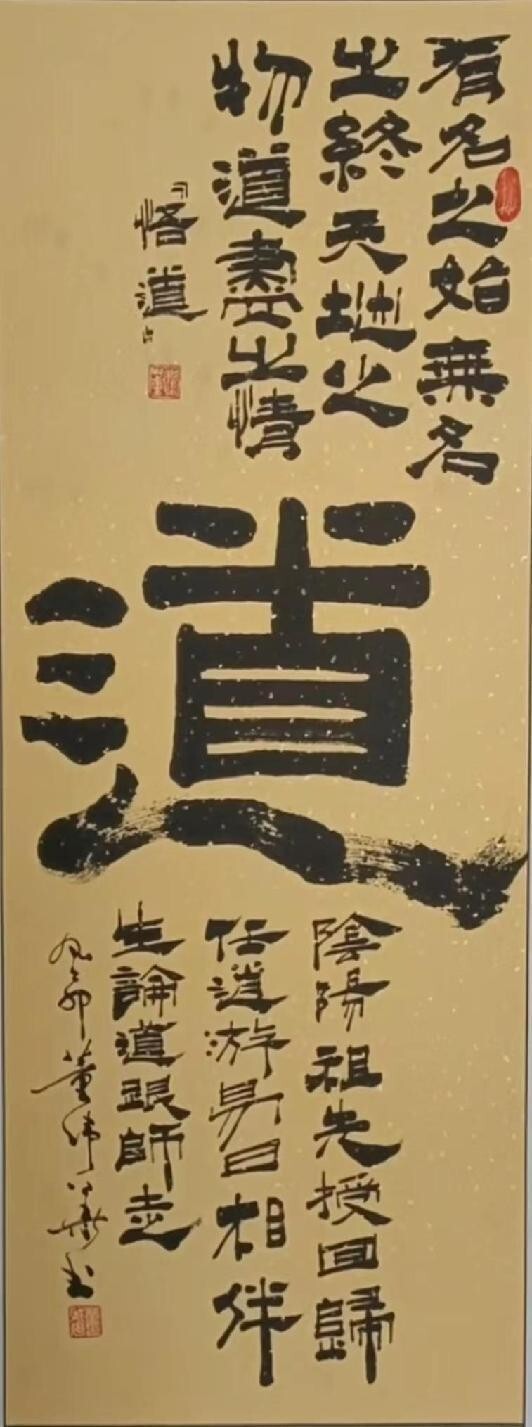 有名之始無名
之終天地之
物道盡之情
「悟道」
道
陰陽祖先授回歸
任道游易日相伴
生論道跟師走
癸卯董偉 書